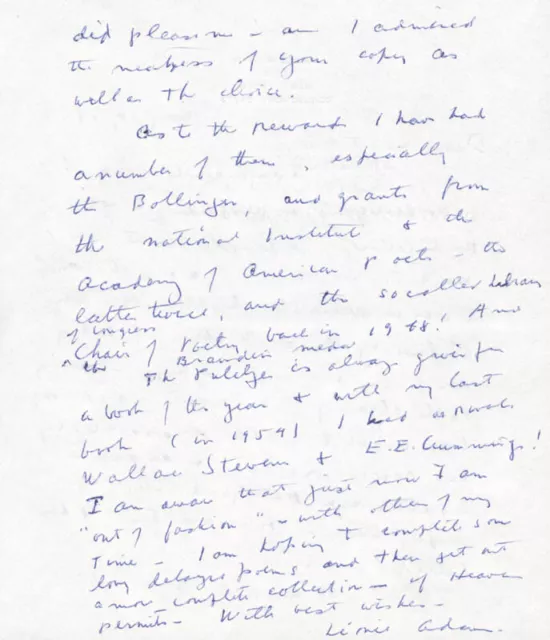 did please me – and I admired
the neatness of your copy as
well as the choice.
As to the rewards I have had
a number of them, especially
the Bollingen, and grants from
the national Institute & the
academy of american poets – the
latter twice, and the socalled Library
of Congress
Chair of Poetry back in 1948, And
the Brandeis medal
The Pulitzer is always given for
a book of the year & with my last
book (in 1959) I had as rivals
Wallace Stevens & E.E. Cummings!
I am aware that just now I am
"out of fashion" – with others of my
Time – I am hoping to complete some
long delayed poems and then get out
a more complete collection – if Heaven
permits – With best wishes –
Léonie Adams